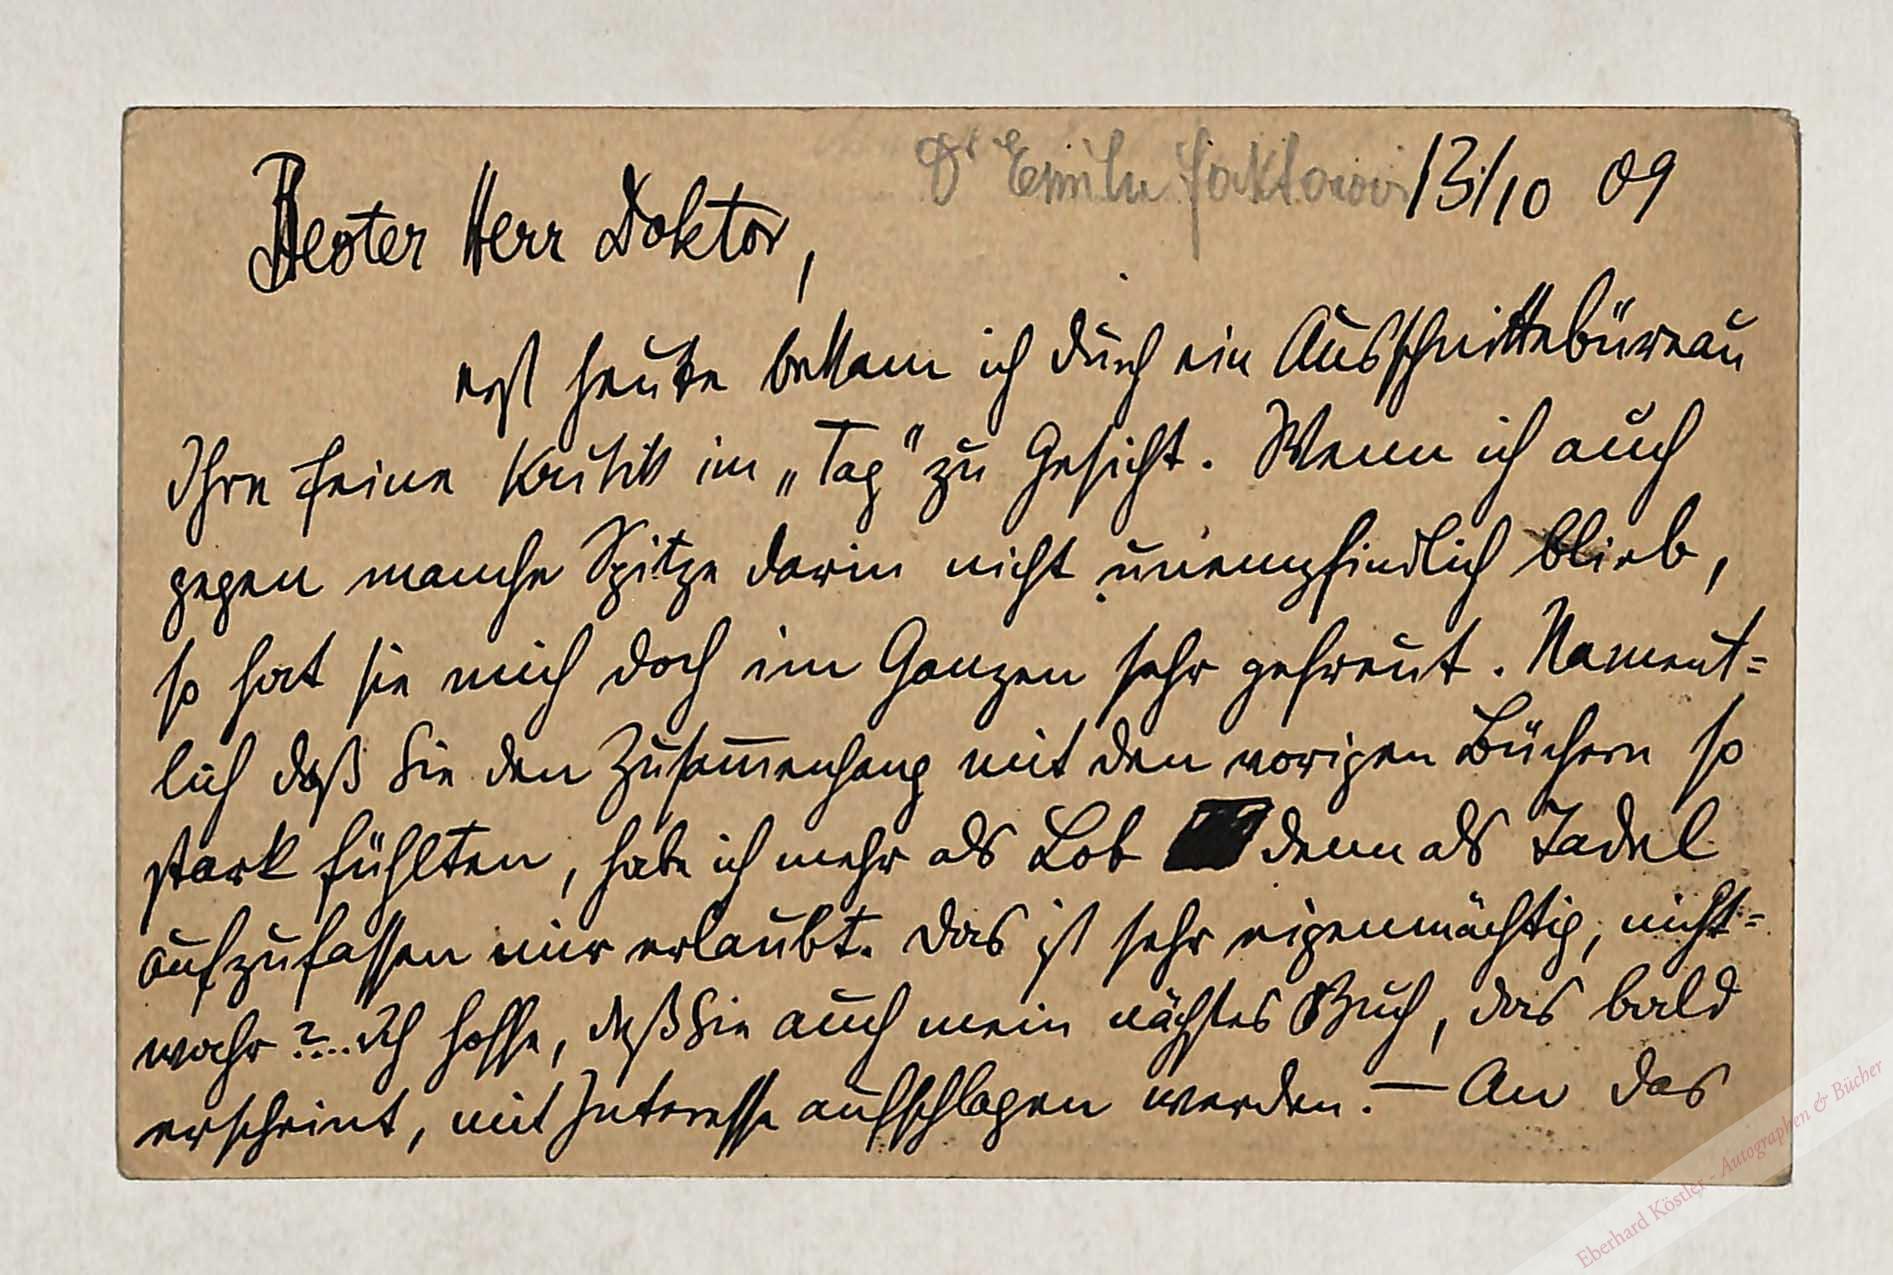 Dr Emilu Faktorovi 13/10 09
Bester Herr Doktor,
erst heute bekam ich durch ein Ausschnittebüreau
Ihre feine Kritik im „Tag" zu Gesicht. Wenn ich auch
gegen manche Spitze darin nicht unempfindlich blieb,
so hat sie mich doch im Ganzen sehr gefreut. Nament=
lich daß Sie den Zusam̅enhang mit den vorigen Büchern so
stark fühlten, habe ich mehr als Lob denn als Tadel
aufzufassen mir erlaubt. Das ist sehr eigenmächtig, nicht=
wahr?... Ich hoffe, daß Sie auch mein nächstes Buch, das bald
erscheint, mit Interesse aufschlagen werden. — An das
Eberhard Köstler - Autographen & Bücher